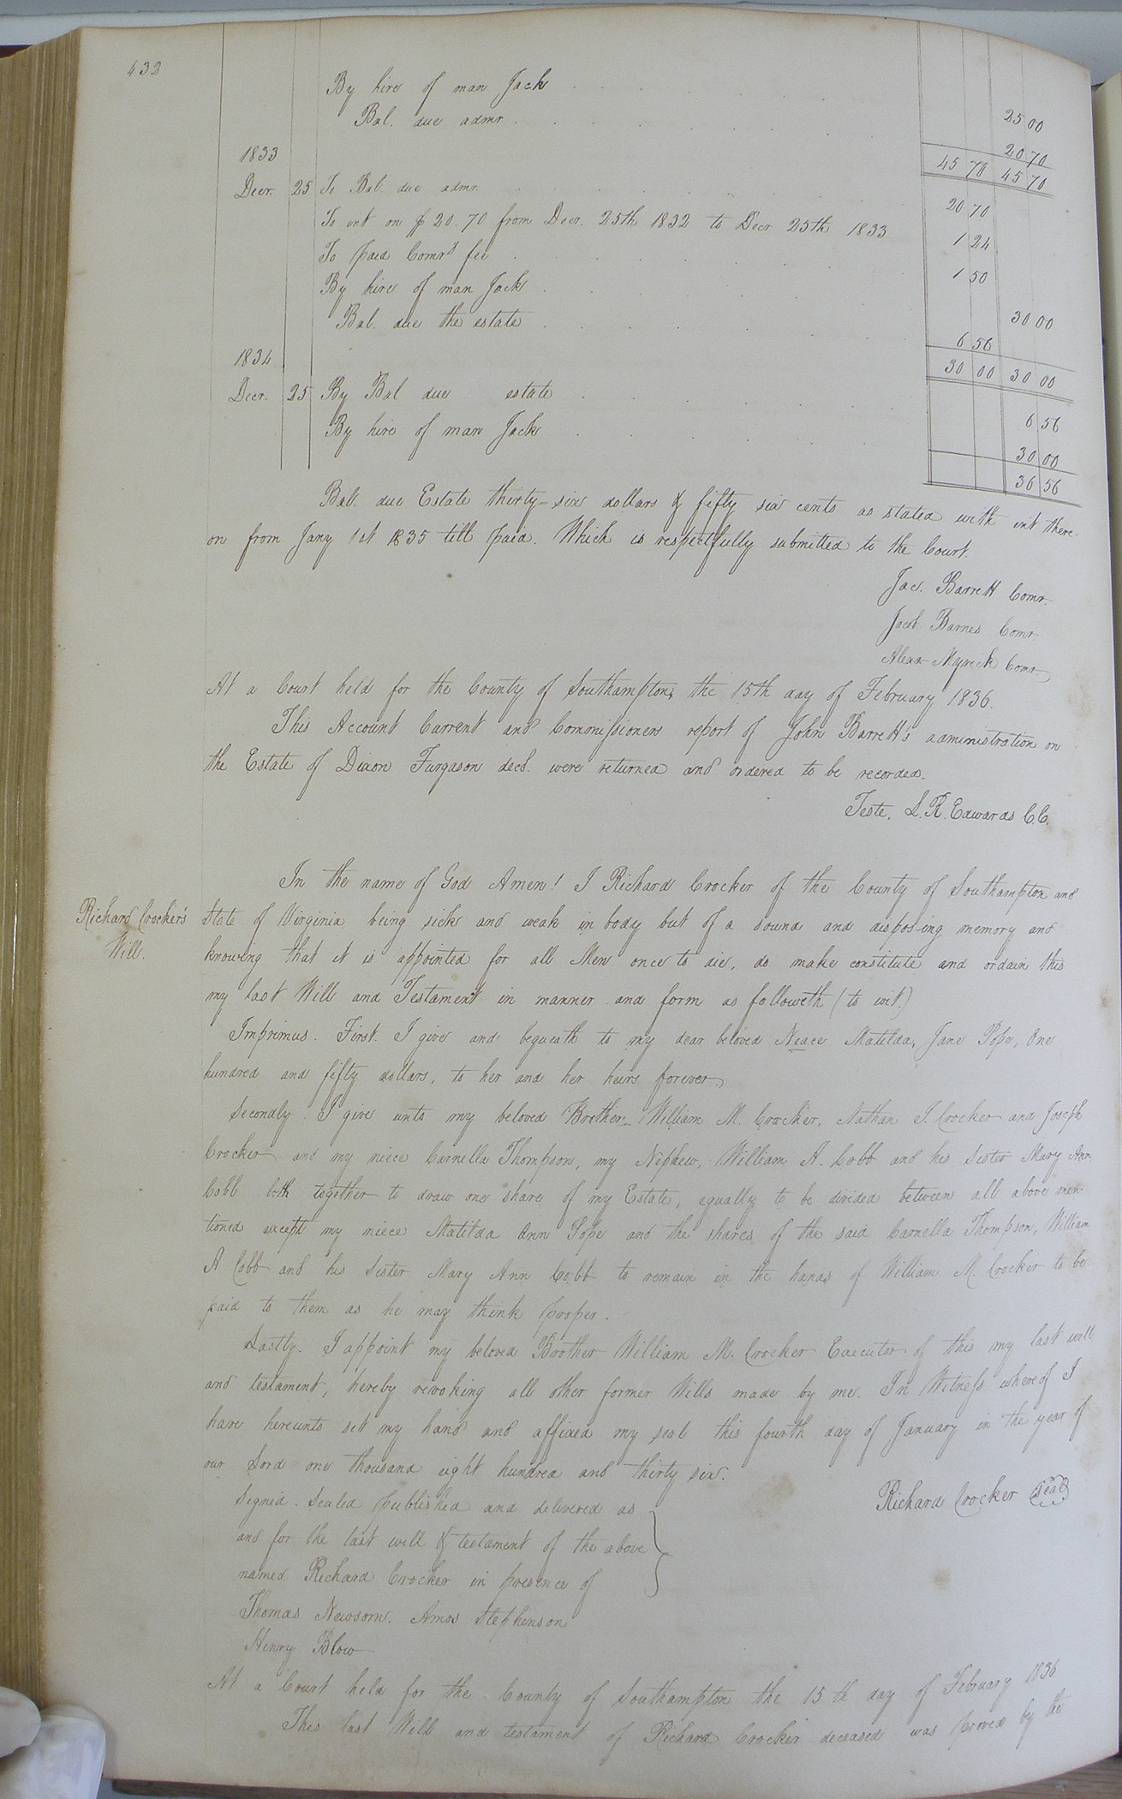 432
By hire of man Jack 25 00
Bal. due admr. 20 70
1833 45 70 45 70
Decr. 25 To Bal. due admr. 20 70
To int on $ 20.70 from Decr. 25th 1832 to Decr 25th 1833 1 24
To paid Comrs fee 1 50
By hire of man Jack 30 00
Bal. due the estate 6 56
1834 30 00 30 00
Decr. 25 By Bal due estate 6 56
By hire of man Jack 30 00
36 56
Bal. due Estate thirty-six dollars & fifty six cents as stated with int there
on from Jany 1st 1835 till paid. Which is respectfully submitted to the Court.
Jac. Barrett Comr.
Jacob Barnes Comr
Alexr Myrick Comr
At a Court held for the County of Southampton, the 15th day of February 1836.
This Account Current and Commissioners report of John Barrett's administration on
the Estate of Dixon Furgason decd. were returned and ordered to be recorded.
Teste. L. R. Edwards C.C.
In the name of God Amen! I Richard Crocker of the County of Southampton and
Richard Crocker's State of Virginia being sick and weak in body but of a sound and disposing memory and
Will. knowing that it is appointed for all Men once to die, do make constitute and ordain this
my last Will and Testament in manner and form as followeth (to wit.)
Imprimus. First. I give and bequeath to my dear beloved Neace Matilda, Jane Pope, One
hundred and fifty dollars, to her and her heirs forever
Secondly. I give unto my beloved Brother William M. Crocker, Nathan J. Crocker and Joseph
Crocker and my niece Carnella Thompson, my Nephew, William A. Cobb and his Sister Mary Ann
Cobb both together to draw one share of my Estate, equally to be divided between all above men
tioned except my niece Matilda Ann Pope and the shares of the said Carnella Thompson, William
A Cobb and his Sister Mary Ann Cobb to remain in the hands of William M. Crocker to be
paid to them as he may think proper.
Lastly. I appoint my beloved Brother William M. Crocker Executor of this my last will
and testament, hereby revoking all other former Wills made by me. In Witness whereof I
have hereunto set my hand and affixed my seal this fourth day of January in the year of
our Lord one thousand eight hundred and thirty six.
Richard Crocker Seal
Signed. Sealed published and delivered as
and for the last will & testament of the above
named Richard Crocker in presence of
Thomas Newsom. Amos Stephenson
Henry Blow
At a Court held for the County of Southampton the 15th day of February 1836
This last Will and testament of Richard Crocker deceased was proved by the